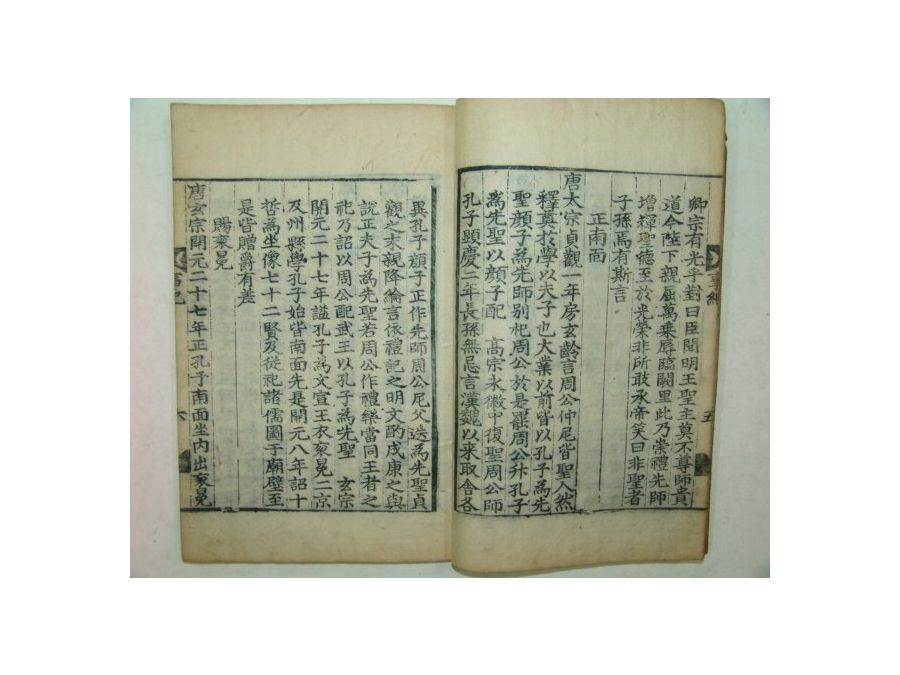 卿宗有光乎對曰臣聞明王聖主莫不尊師貴
道今陛下親屈萬乗辱臨闕里此乃崇禮先師
增輝聖德至於光榮非所敢承帝笑曰非聖者
子孫焉有斯言
正南面
唐太宗貞觀一年房玄齡言周公仲尼皆聖人然
釋奠於學以夫子也大業以前皆以孔子為先
聖顔子為先師别祀周公於是罷周公升孔子
爲先聖以顔子配 高宗永徽中復聖周公師
孔子顯慶二年長孫無忌言漢魏以來取舍各
異孔子顔子正作先師周公尼父迭為先聖貞
觀之末親降綸言依禮記之明文酌成康之與
說正夫子為先聖若周公作禮樂當同王者之
祀乃詔以周公配武王以孔子為先聖 玄宗
開元二十七年謚孔子為文宣王衣衮冕二京
及州縣學孔子始皆南面先是開元八年詔十
哲為坐像七十二賢及從祀諸儒圖于廟壁至
是皆贈爵有差
賜衮冕
唐玄宗開元二十七年正孔子南面坐内出衮冕
五
六